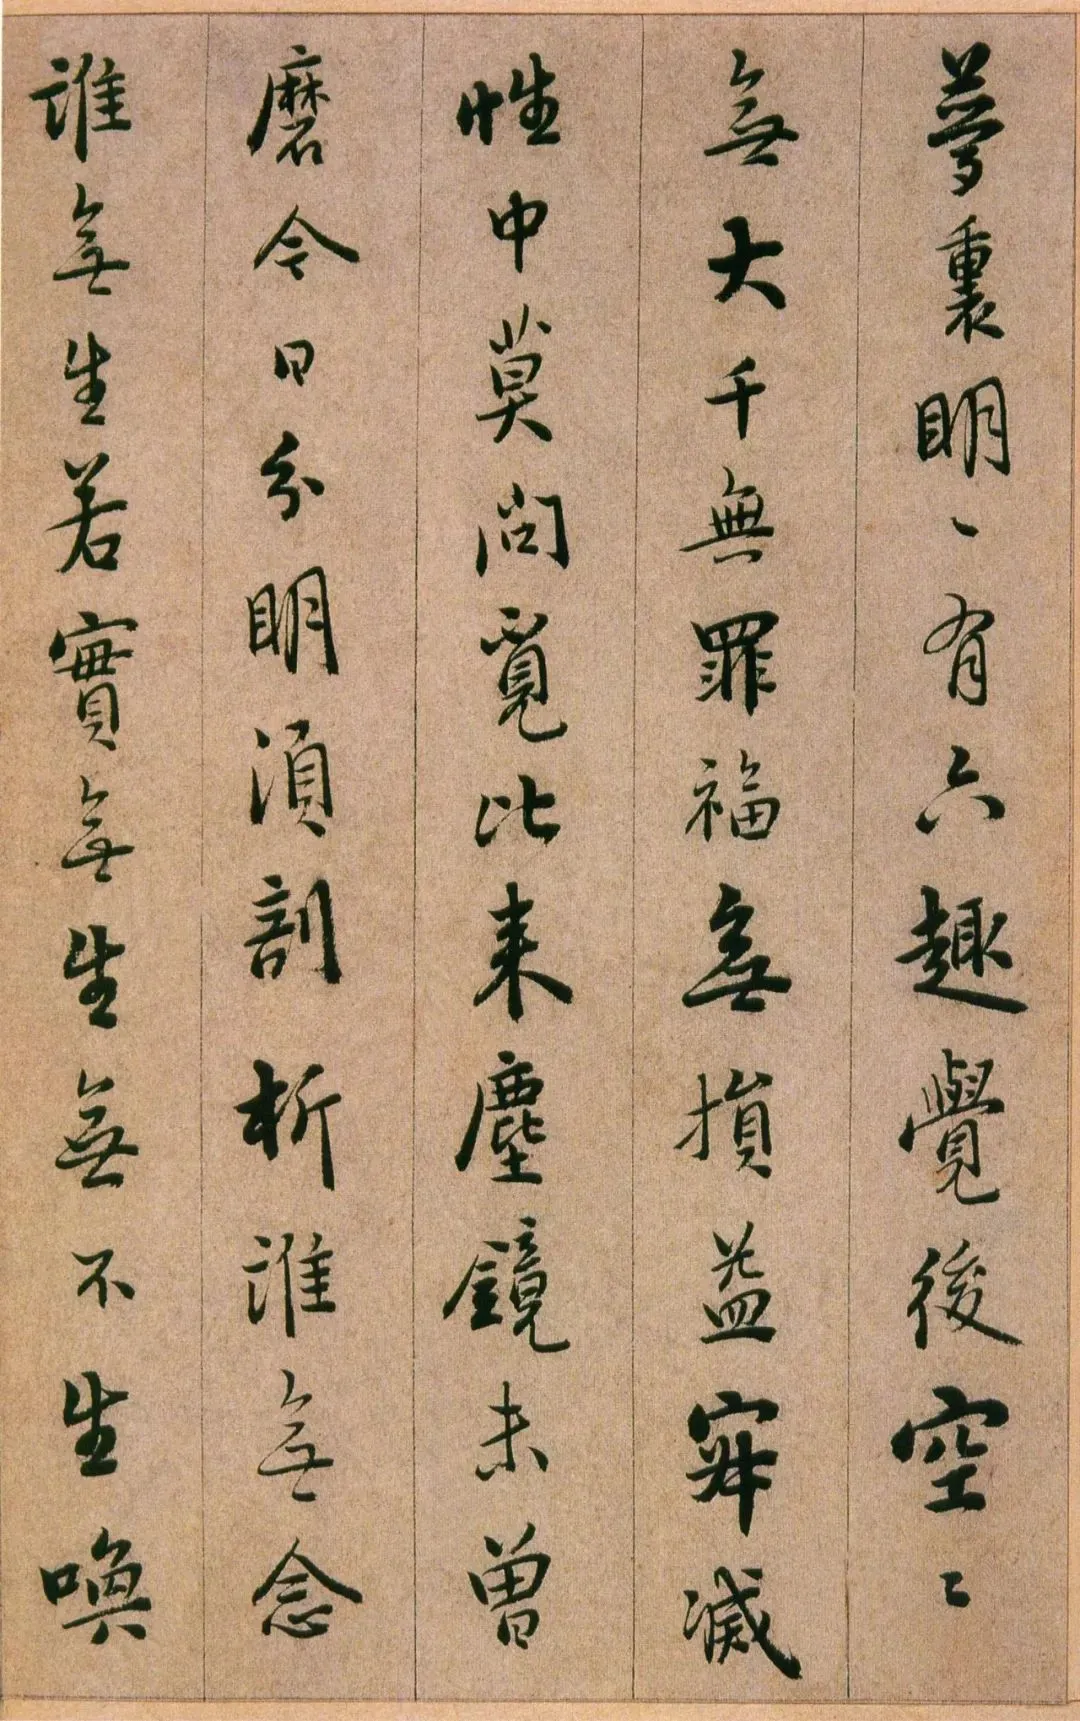 夢裏明〻有六趣覺後空〻
無大千無罪福無損益寂滅
性中莫問覓比来塵鏡未曾
磨今日分明湏剖析誰無念
誰無生若實無生無不生喚